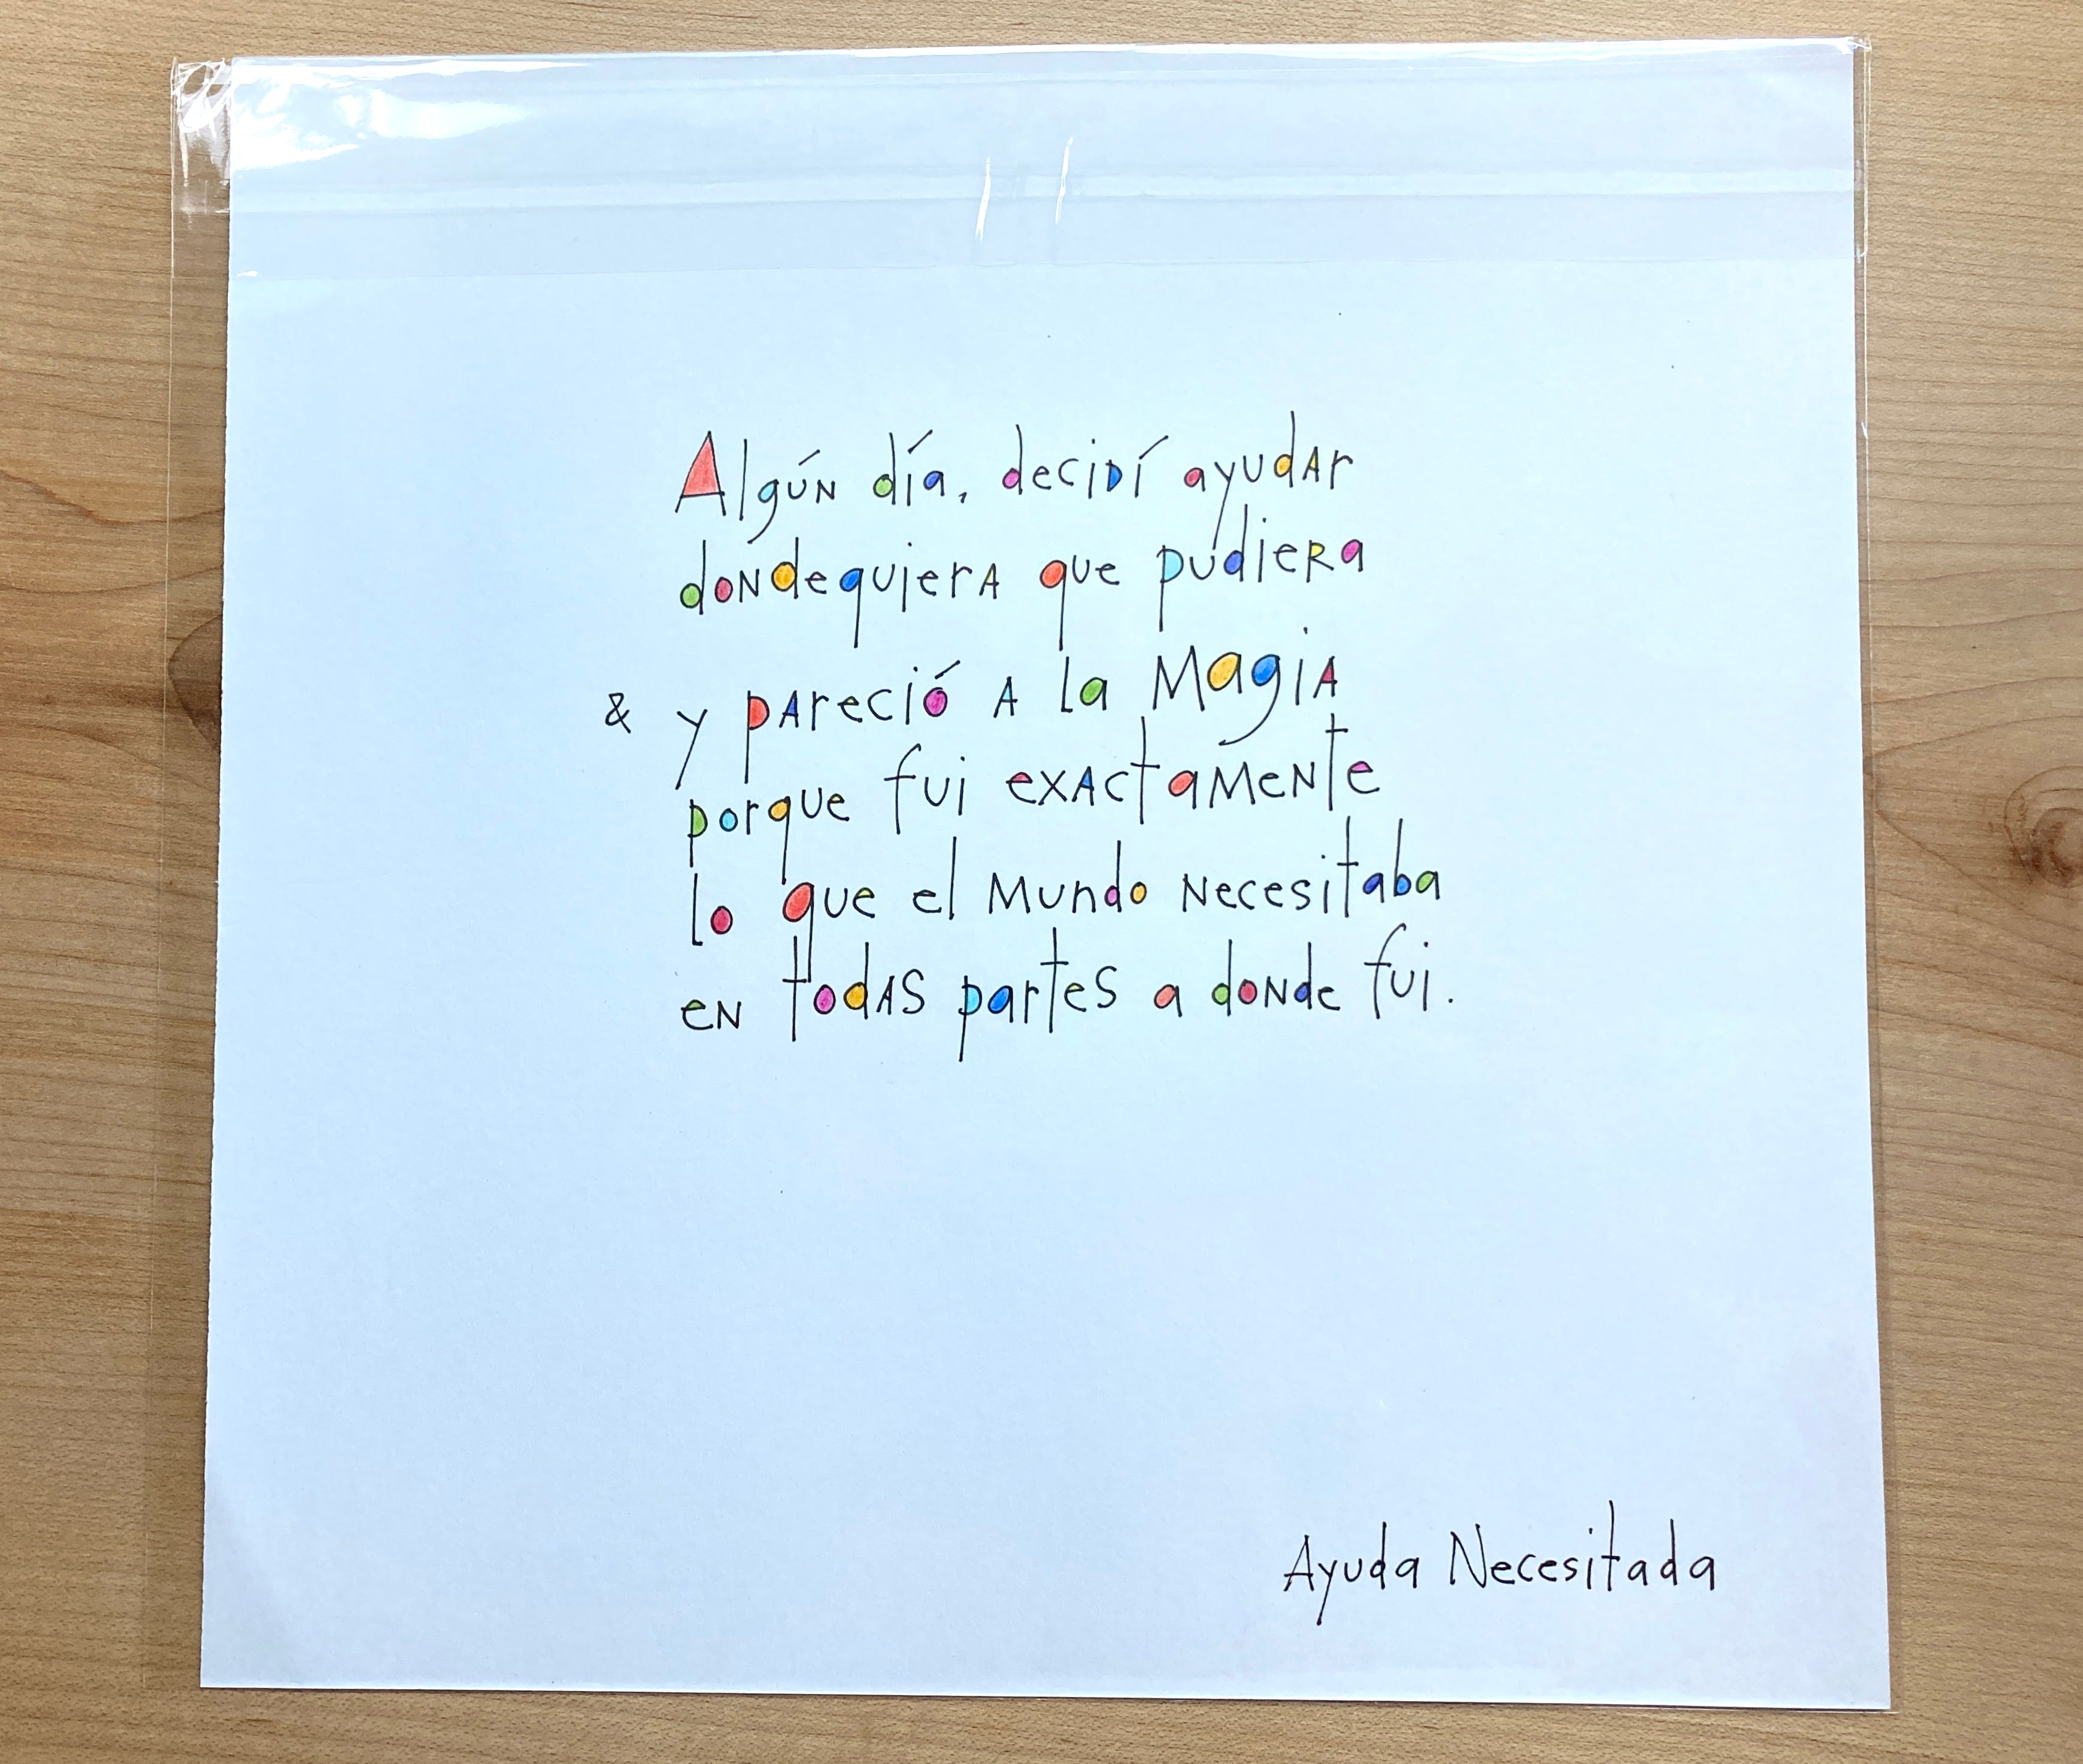 Algún día, decidí ayudar
dondequiera que pudiera
& y pareció a la Magia
porque fui exactamente
lo que el mundo necesitaba
en todas partes a donde fui.
Ayuda Necesitada